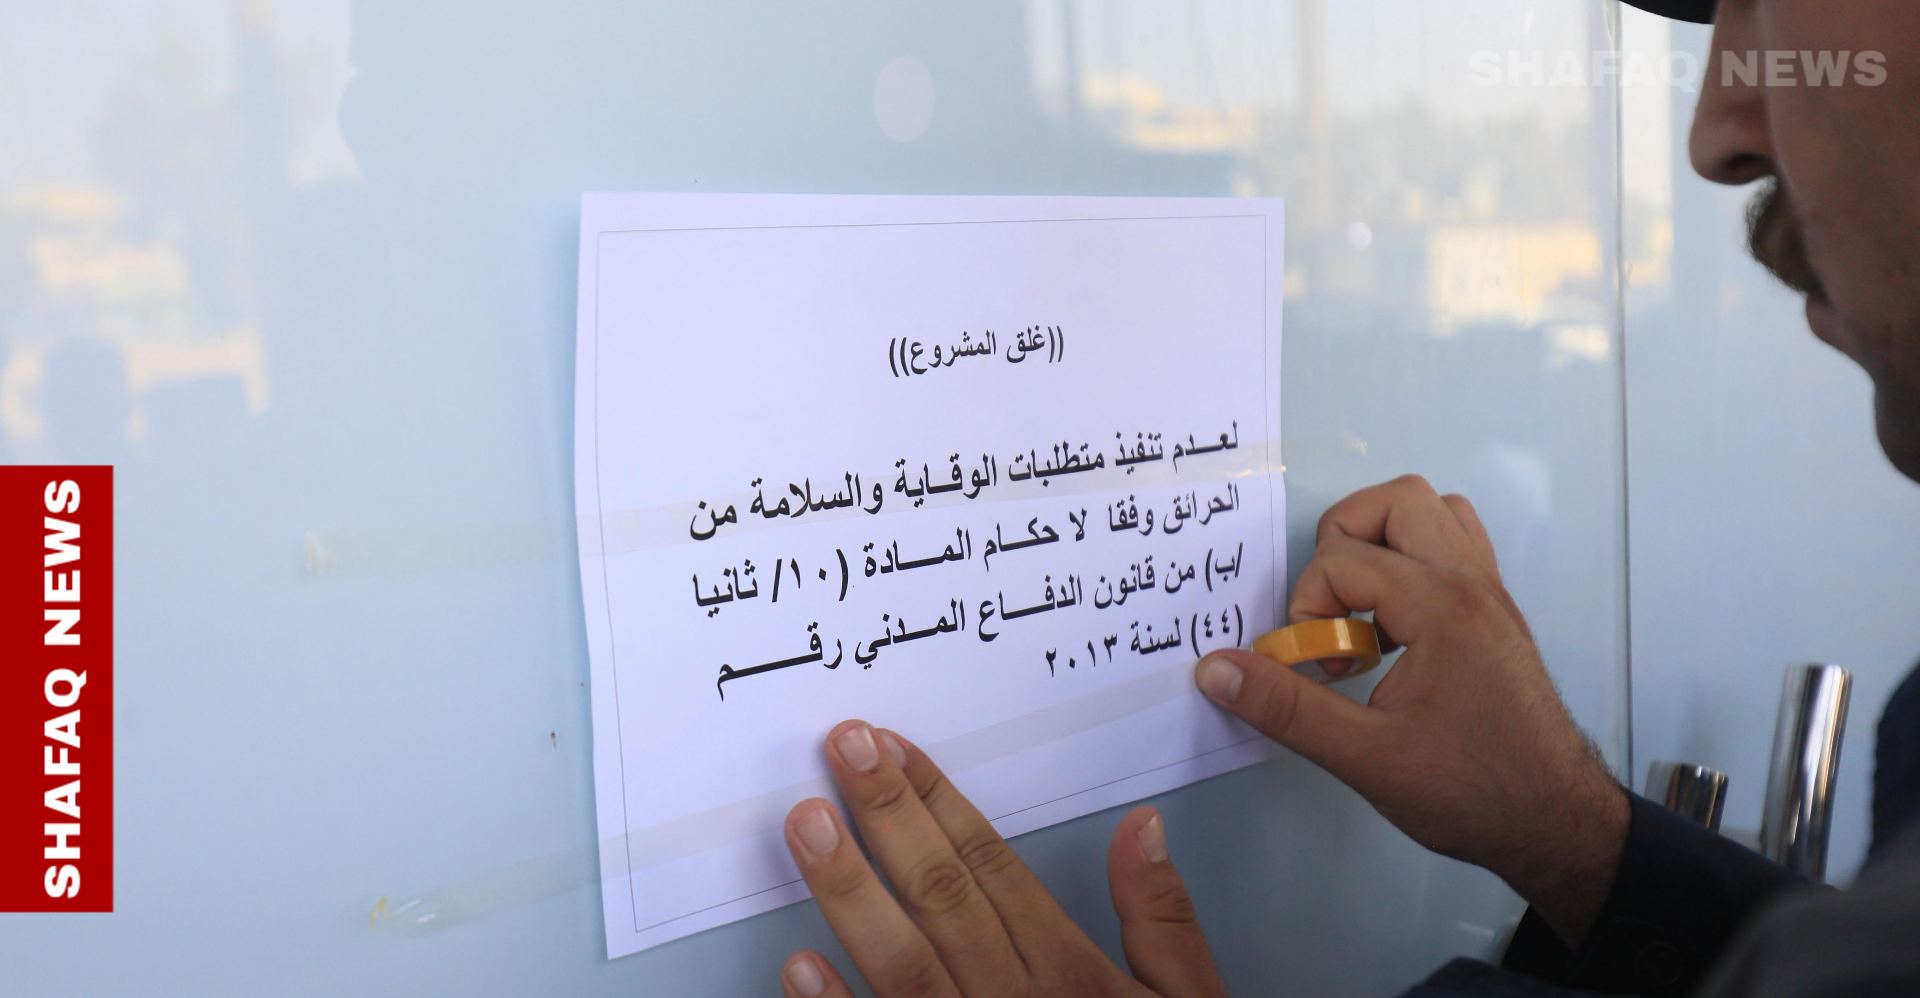 SHAFAQ NEWS
((غلق المشروع))
لعدم تنفيذ متطلبات الوقاية والسلامة من
الحرائق وفقا لا حكام المادة (١٠/ ثانيا
/ب) من قانون الدفاع المدني رقم
(٤٤) لسنة ٢٠١٣
SHAFAQ NEWS